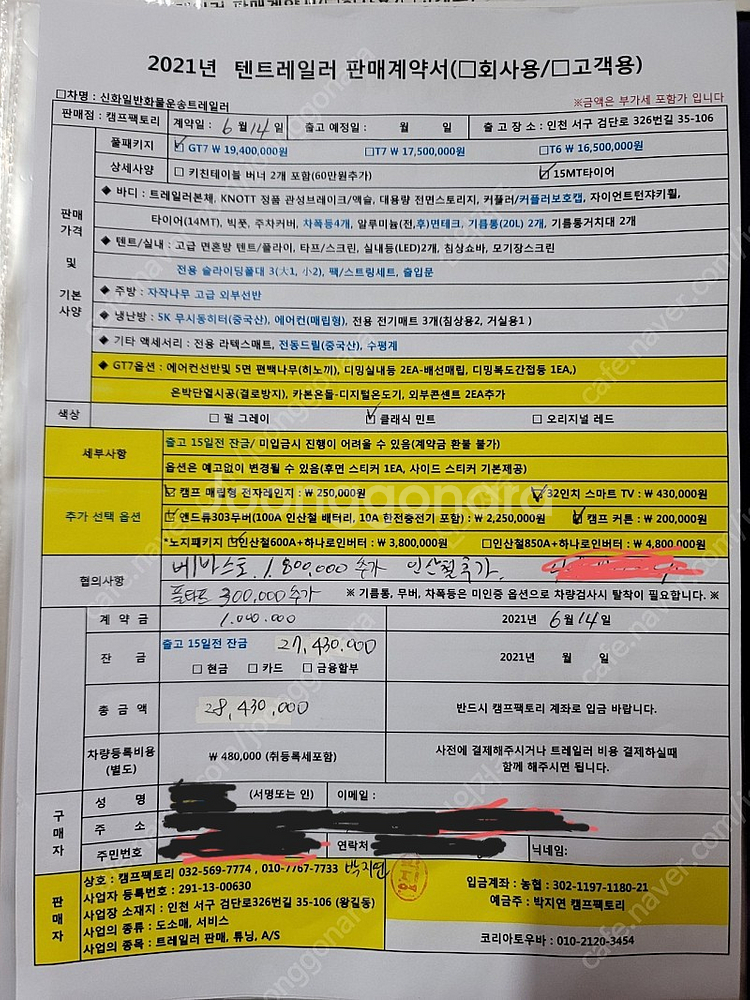 2021년 텐트레일러 판매계약서(□회사용/□고객용)
□차명 : 신화일반화물운송트레일러
※금액은 부가세 포함가 입니다
판매점 : 캠프팩토리 계약일 : 6 월 14 일 출고 예정일 : 월 일 출 고 장 소 : 인천 서구 검단로 326번길 35-106
판매 가격 및 기본 사양
풀패키지 ☑ GT7 ₩ 19,400,000원 □T7 ₩ 17,500,000원 □T6 ₩ 16,500,000원
상세사양 □ 키친테이블 버너 2개 포함(60만원추가) ☑ 15MT타이어
◆ 바디 : 트레일러본체, KNOTT 정품 관성브레이크/액슬, 대용량 전면스토리지, 커플러/커플러보호캡, 자이언트턴쟈키휠,
타이어(14MT), 빅풋, 주차커버, 차폭등4개, 알루미늄(전,후)면테크, 기름통(20L) 2개, 기름통거치대 2개
◆ 텐트/실내 : 고급 면혼방 텐트/플라이, 타프/스크린, 실내등(LED)2개, 침상쇼바, 모기장스크린
전용 슬라이딩폴대 3(大1, 小2), 팩/스트링세트, 출입문
◆ 주방 : 자작나무 고급 외부선반
◆ 냉난방 : SK 무시동히터(중국산), 에어컨(매립형), 전용 전기매트 3개(침상용2, 거실용1 )
◆ 기타 액세서리 : 전용 라텍스매트, 전동드릴(중국산), 수평계
◆ GT7옵션 : 에어컨선반및 5면 편백나무(히노끼), 디밍실내등 2EA-배선매립, 디밍복도간접등 1EA,)
온박단열시공(결로방지), 카본온돌-디지털온도기, 외부콘센트 2EA추가
색상 □ 펄 그레이 ☑ 클래식 민트 □ 오리지널 레드
세부사항 출고 15일전 잔금/ 미입금시 진행이 어려울 수 있음(계약금 환불 불가)
옵션은 예고없이 변경될 수 있음(후면 스티커 1EA, 사이드 스티커 기본제공)
추가 선택 옵션
☑ 캠프 매립형 전자레인지 : ₩ 250,000원 ☑ 32인치 스마트 TV : ₩ 430,000원
☑ 앤드류303무버(100A 인산철 배터리, 10A 한전충전기 포함) : ₩ 2,250,000원 ☑ 캠프 커튼 : ₩ 200,000원
*노지패키지 ☑인산철600A+하나로인버터 : ₩ 3,800,000원 □인산철850A+하나로인버터 : ₩ 4,800,000원
협의사항 베바스토 1.800,000 추가 인산철추가.
풀타프 300,000추가 ※ 기름통, 무버, 차폭등은 미인증 옵션으로 차량검사시 탈착이 필요합니다. ※
계 약 금 1.000.000 2021년 6월 14일
잔 금 출고 15일전 잔금 27,430.000 2021년 월 일
□ 현금 □ 카드 □ 금융할부
총 금 액 28,430,000 반드시 캠프팩토리 계좌로 입금 바랍니다.
차량등록비용 (별도) ₩ 480,000 (취등록세포함) 사전에 결제해주시거나 트레일러 비용 결제하실때
함께 해주시면 됩니다.
구매자
성 명 (서명또는 인) 이메일 :
주 소
주민번호 연락처 닉네임:
판매자
상호 : 캠프팩토리 032-569-7774 , 010-7767-7733 박지연
사업자 등록번호 : 291-13-00630
사업장 소재지 : 인천 서구 검단로326번길 35-106 (왕길동)
사업의 종류 : 도소매, 서비스
사업의 종목 : 트레일러 판매, 튜닝, A/S
입금계좌 : 농협 : 302-1197-1180-21
예금주 : 박지연 캠프팩토리
코리아토우바 : 010-2120-3454
joonggonara
cafe.naver.com/joonggonara